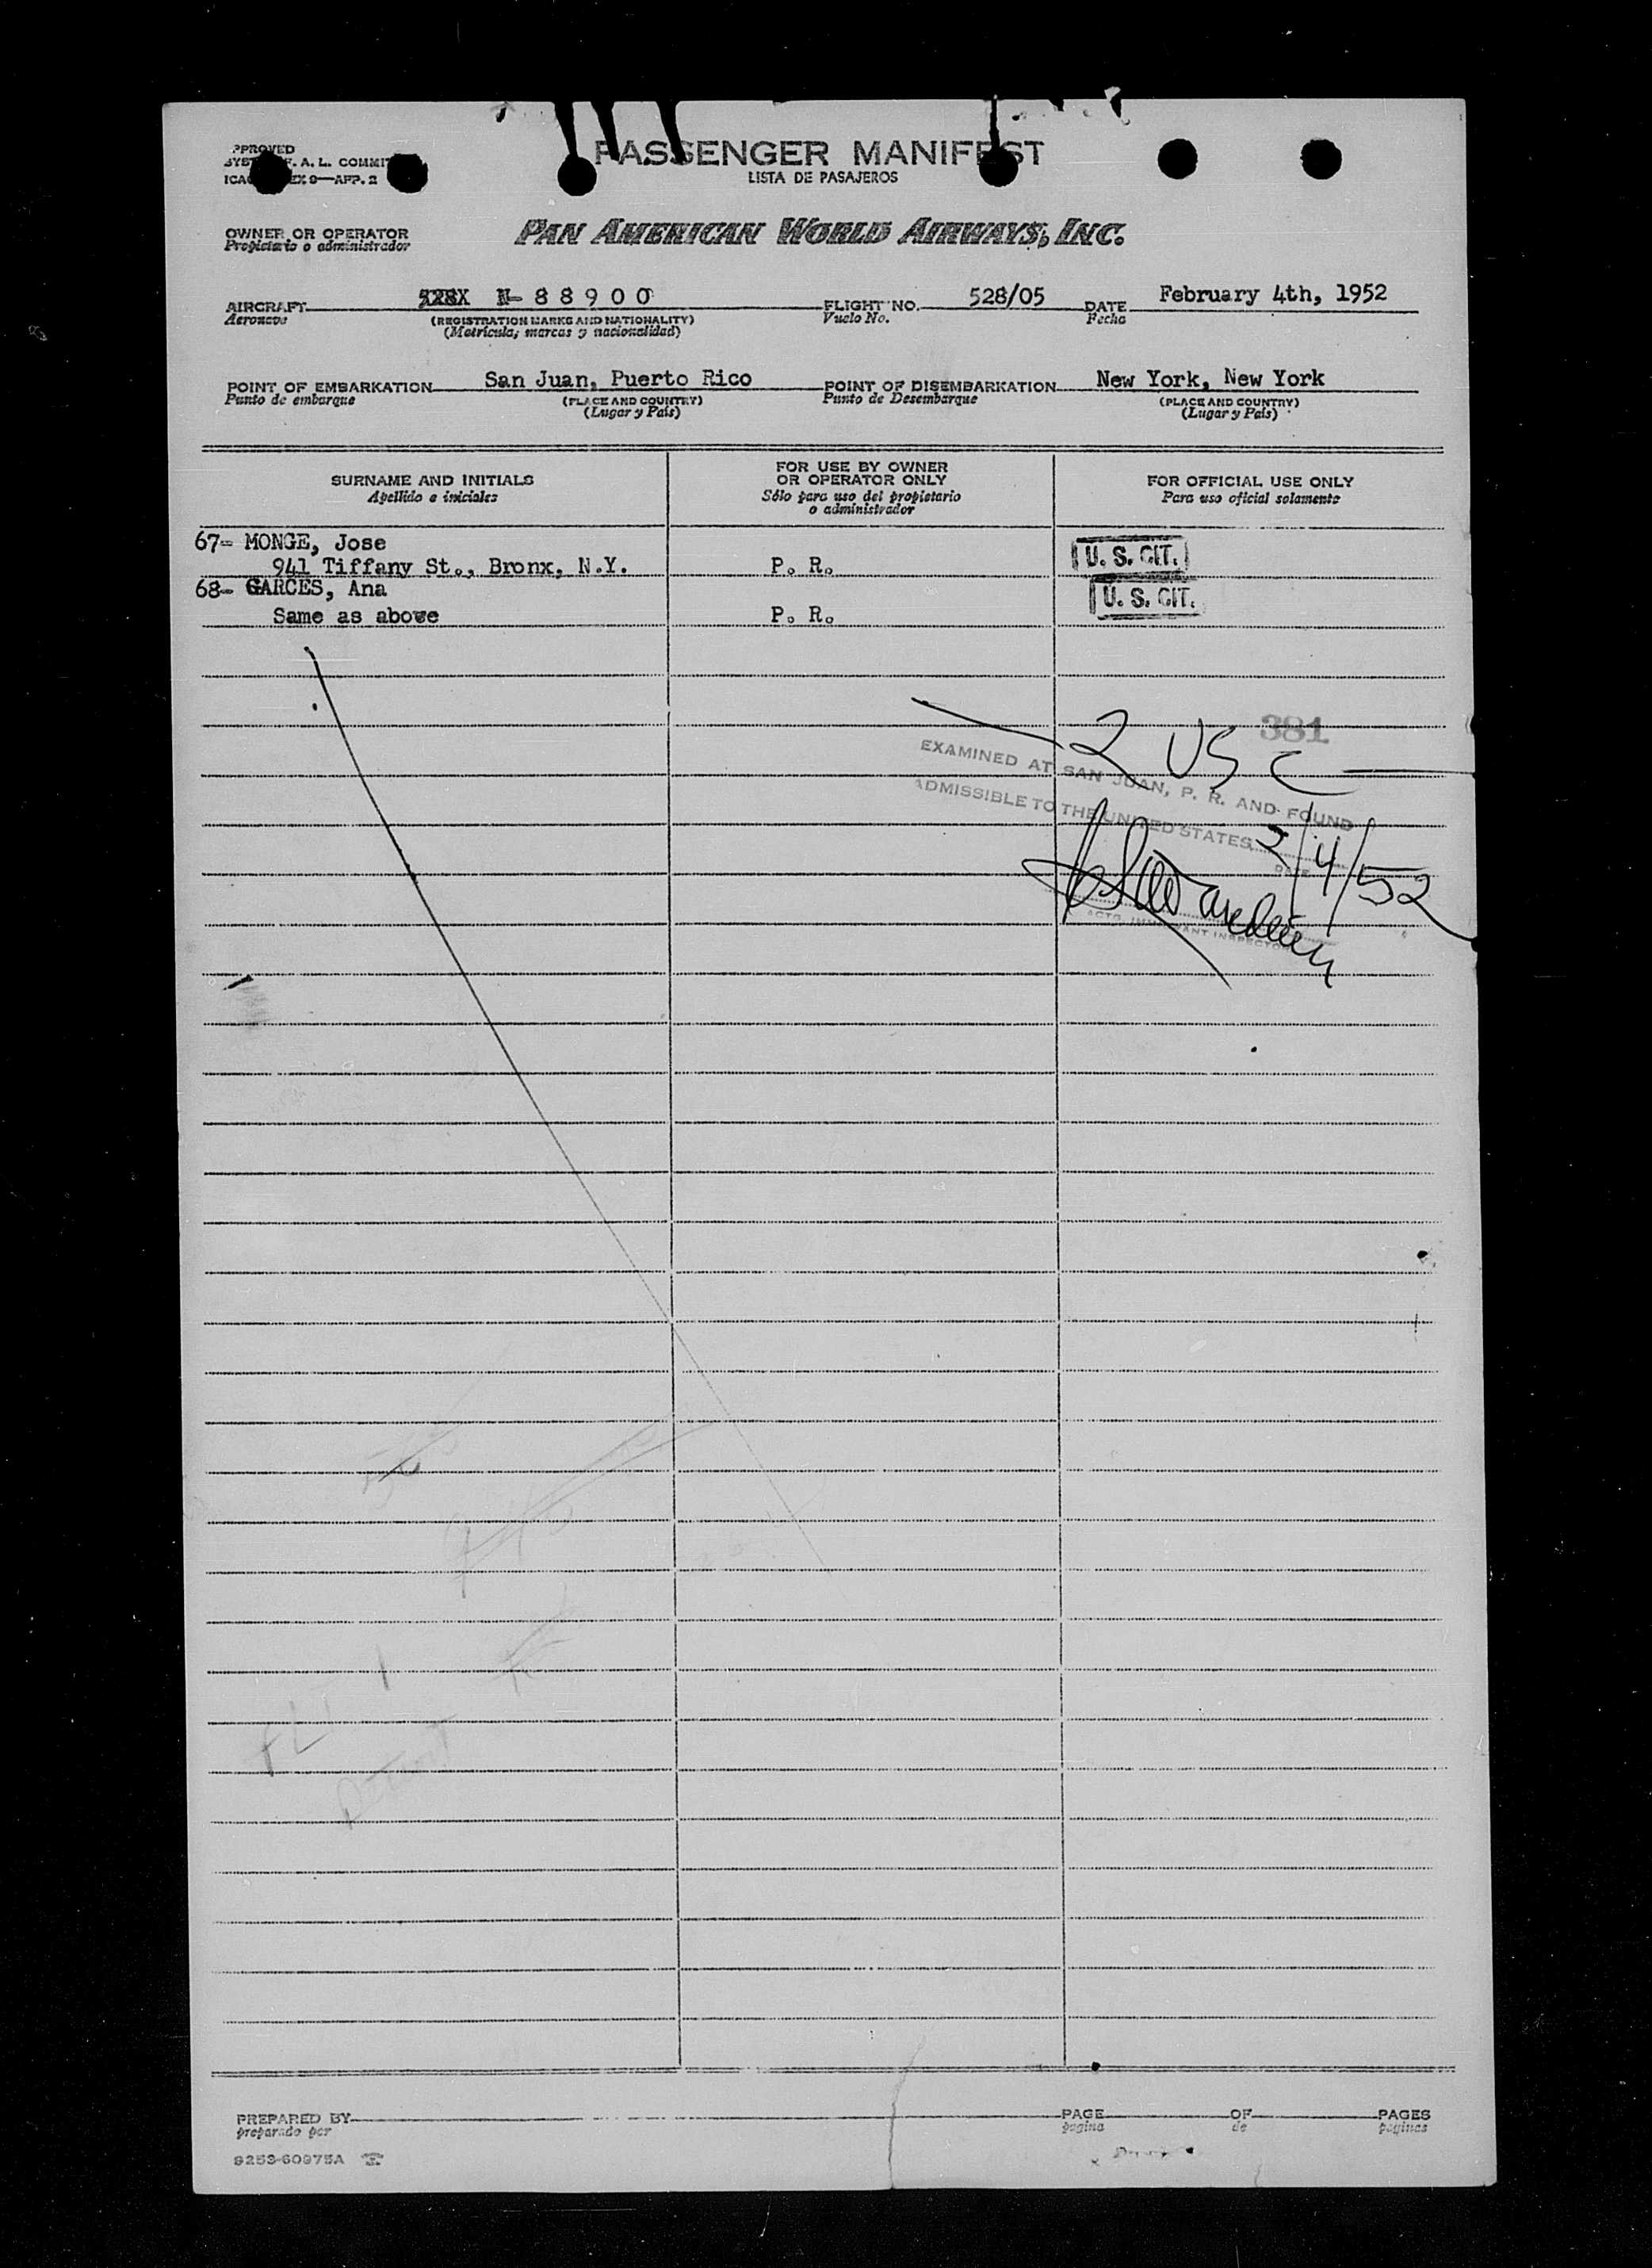 PASSENGER MANIFEST
LISTA DE PASAJEROS
OWNER OR OPERATOR
Propietario o administrador
PAN AMERICAN WORLD AIRWAYS, INC.
AIRCRAFT N-88900 FLIGHT NO. 528/05 DATE February 4th, 1952
Aeronave (REGISTRATION MARKS AND NATIONALITY) Vuelo No. Fecha
(Matrícula, marcas y nacionalidad)
POINT OF EMBARKATION San Juan, Puerto Rico POINT OF DISEMBARKATION New York, New York
Punto de embarque (PLACE AND COUNTRY) Punto de Desembarque (PLACE AND COUNTRY)
(Lugar y País) (Lugar y País)
SURNAME AND INITIALS
Apellido e iniciales
FOR USE BY OWNER
OR OPERATOR ONLY
Sólo para uso del propietario
o administrador
FOR OFFICIAL USE ONLY
Para uso oficial solamente
67- MONGE, Jose
941 Tiffany St., Bronx, N.Y. P. R. U. S. CIT.
68- GARCES, Ana U. S. CIT.
Same as above P. R.
381
2 USC
EXAMINED AT SAN JUAN, P. R. AND FOUND
ADMISSIBLE TO THE UNITED STATES 2/4/52
DATE
ACTG. IMMIGRANT INSPECTOR
FLT 1
PREPARED BY PAGE OF PAGES
preparado por página de páginas
9253-60975A